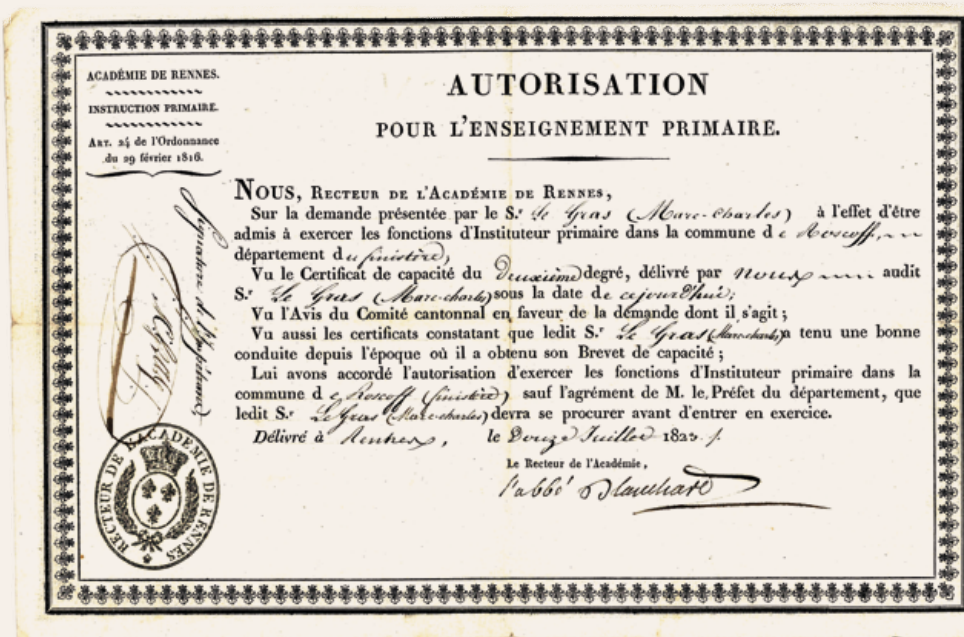 ACADÉMIE DE RENNES.
INSTRUCTION PRIMAIRE.
ART. 24 de l'Ordonnance
du 29 février 1816.
Signature de l'Impétrant
AUTORISATION
POUR L'ENSEIGNEMENT PRIMAIRE.
NOUS, RECTEUR DE L'ACADÉMIE DE RENNES,
Sur la demande présentée par le S.r Le Gras (Marc-Charles) à l'effet d'être
admis à exercer les fonctions d'Instituteur primaire dans la commune de Roscoff,
département du finistère,
Vu le Certificat de capacité du Deuxième degré, délivré par nous audit
S.r Le Gras (Marc-charles) sous la date de cejourd'hui;
Vu l'Avis du Comité cantonnal en faveur de la demande dont il s'agit ;
Vu aussi les certificats constatant que ledit S.r Le Gras (Marc-charles) a tenu une bonne
conduite depuis l'époque où il a obtenu son Brevet de capacité ;
Lui avons accordé l'autorisation d'exercer les fonctions d'Instituteur primaire dans la
commune de Roscoff (finistère) sauf l'agrément de M. le Préfet du département, que
ledit S.r Le Gras (Marc-charles) devra se procurer avant d'entrer en exercice.
Délivré à Rennes, le Douze Juillet 1823.
Le Recteur de l'Académie,
l'abbé Blanchard
RECTEUR DE L'ACADEMIE DE RENNES